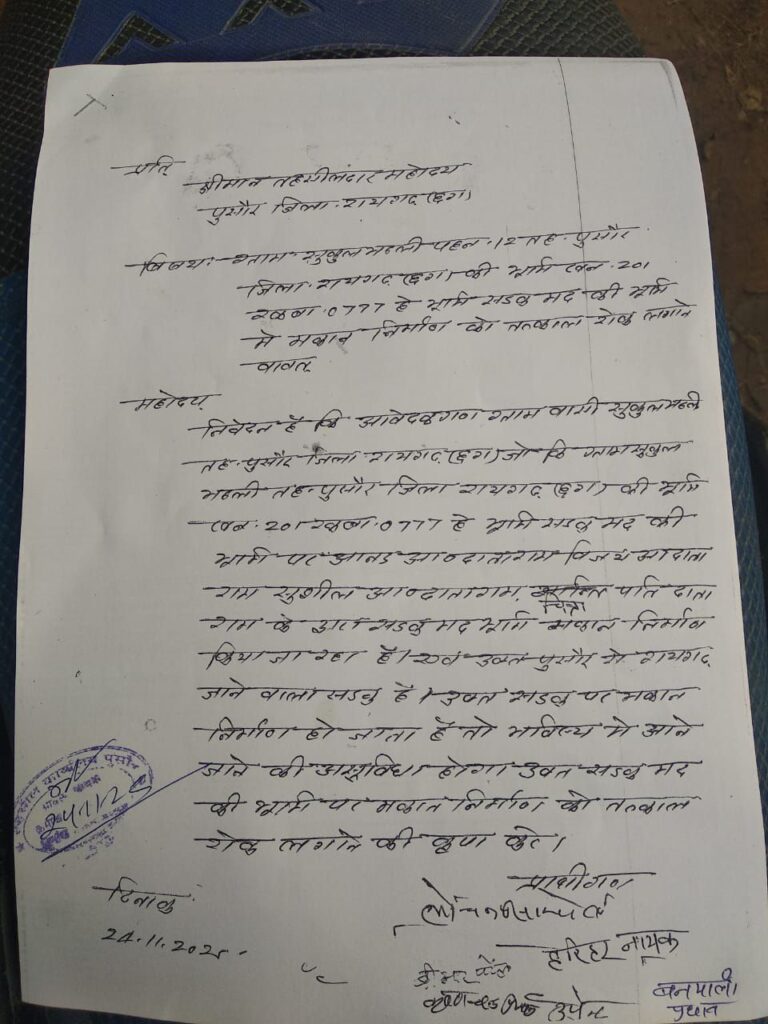 प्रति
श्रीमान तहसीलदार महोदय
पुसौर जिला-रायगढ़ (छग)
विषय:- ग्राम सुकुलभठली पहन.12 तह-पुसौर
जिला-रायगढ़ (छग) की भूमि खन.201
रकबा.0777 हे भूमि सडक मद की भूमि
मे मकान निर्माण को तत्काल रोक लगाने
बावत्
महोदय,
निवेदन है कि आवेदकगण ग्राम वासी सुकुलभठली
तह-पुसौर जिला रायगढ़ (छग) जो कि ग्राम सुकुल
भठली तह-पुसौर जिला रायगढ़ (छग) की भूमि
खन. 201 रकबा.0777 हे भूमि सडक मद की
भूमि पर आ० दाताराम विजय आ दाता
राम सुशील आ० दाताराम, पति दाता
राम के द्वारा सडक मद भूमि मकान निर्माण
किया जा रहा है। एवं उक्त पुसौर से रायगढ़
जाने वाला सडक है। उक्त सडक पर मकान
निर्माण हो जाता है तो भविष्य मे आने
जाने की असुविधा होगा उक्त सडक मद
की भूमि पर मकान निर्माण को तत्काल
रोक लगाने की कृपा करे।
प्रार्थीगण
दिनांक
24.11.202
हरिहर नायक
उपेन्द्र
बनमाली
प्रधान
तहसील कार्यालय पुसौर